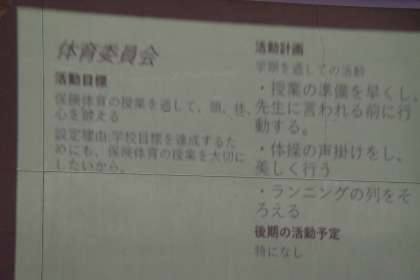 体育委員会
活動目標
保険体育の授業を通して、頭、体、
心を鍛える
設定理由:学校目標を達成するた
めにも、保険体育の授業を大切に
したいから。
活動計画
学期を通しての活動
・授業の準備を早くし、
先生に言われる前に行
動する。
・体操の声掛けをし、
美しく行う
・ランニングの列をそ
ろえる
後期の活動予定
特になし